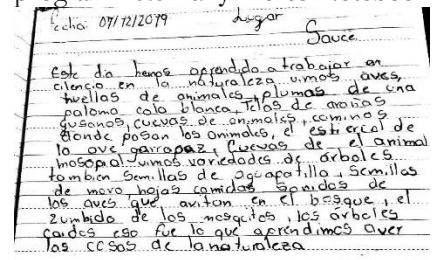 Fecha: 07/12/2019 Lugar
Sauce
Este dia hemos aprendido a trabajar en
cilencio en la naturaleza vimos aves,
huellas de animales, plumas de una
paloma cola blanca, Telas de arañas
gusanos, cuevas de animales, caminos
donde pasan los animales, el estiercol de
la ove garrapaz, Cuevas de el animal
mosopial vimos variedades de árboles
tambien semillas de aguapatillo, semillas
de moro hojas comidas sonidos de
las aves que aviton en el bosque, el
zumbido de los mosquitos, los árboles
caidos eso fue lo que aprendimos aver
las cosas de la naturaleza